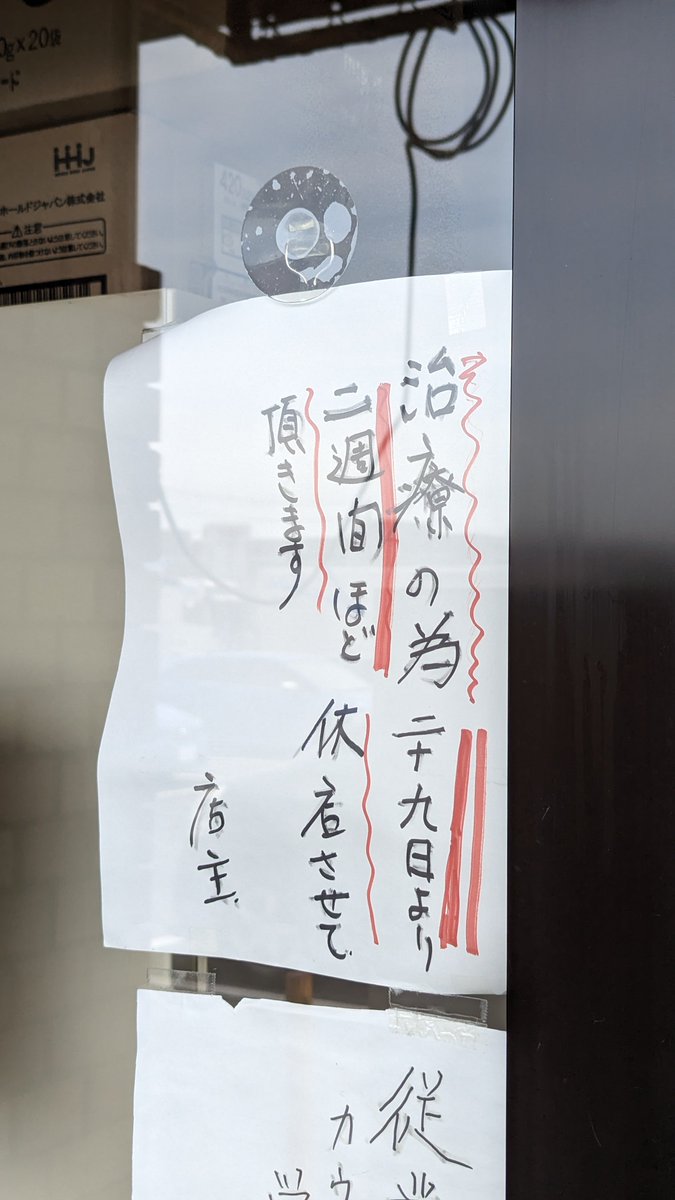 治療の為 二十九日より
二週間ほど 休店させて
頂きます
店主
従業
カウ
0g×20袋
ード
HHJ
ホールドジャパン株式会社
⚠注意
420